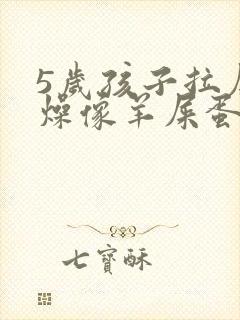 5歲孩子拉
燥像羊屎蛋
七寶酥